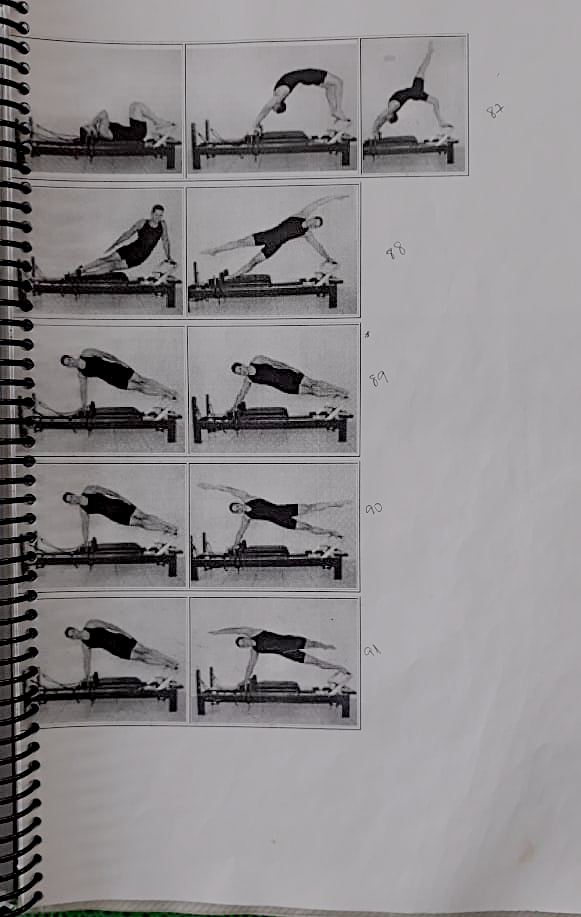 87
88
89
90
91